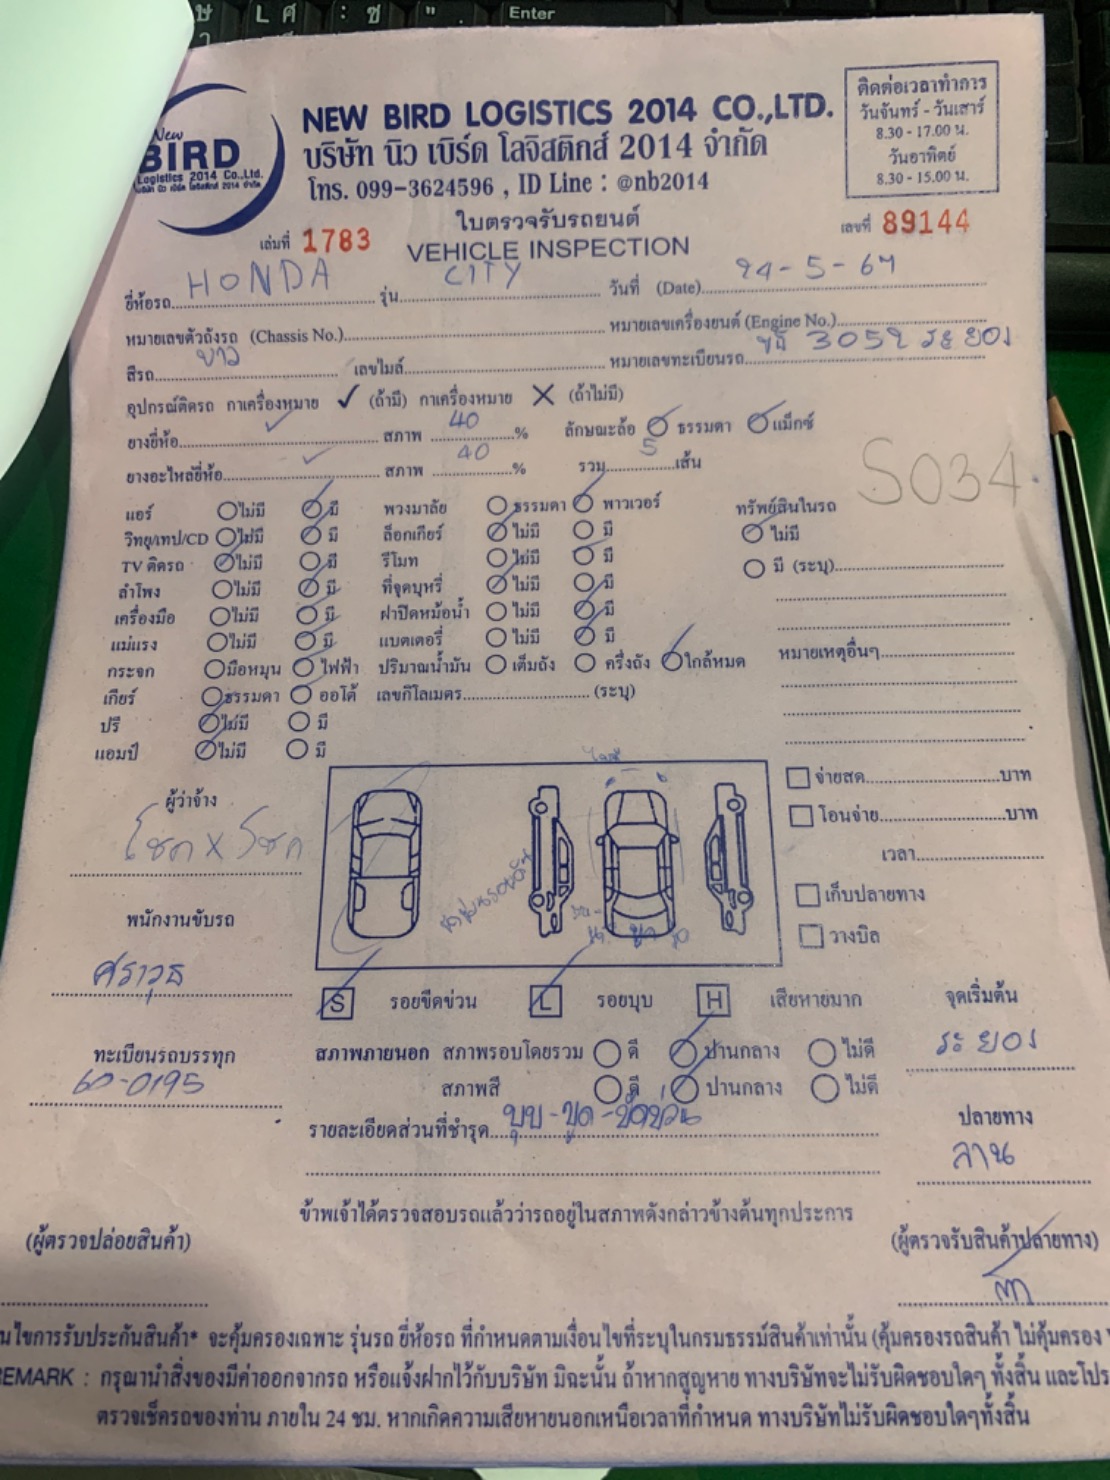 Enter
ติดต่อเวลาทำการ
วันจันทร์ - วันเสาร์
8.30 - 17.00 น.
วันอาทิตย์
8.30 - 15.00 น.
New
BIRD
Logistics 2014 Co.,Ltd.
บริษัท นิว เบิร์ด โลจิสติกส์ 2014 จำกัด
NEW BIRD LOGISTICS 2014 CO.,LTD.
บริษัท นิว เบิร์ด โลจิสติกส์ 2014 จำกัด
โทร. 099-3624596 , ID Line : @nb2014
ใบตรวจรับรถยนต์
เล่มที่ 1783 VEHICLE INSPECTION เลขที่ 89144
ยี่ห้อรถ HONDA รุ่น CITY วันที่ (Date) 24-5-67
หมายเลขตัวถังรถ (Chassis No.) หมายเลขเครื่องยนต์ (Engine No.)
สีรถ ขาว เลขไมล์ หมายเลขทะเบียนรถ 3052 ระยอง
อุปกรณ์ติดรถ กาเครื่องหมาย ✓ (ถ้ามี) กาเครื่องหมาย X (ถ้าไม่มี)
ยางยี่ห้อ ✓ สภาพ 40 % ลักษณะล้อ ธรรมดา แม็กซ์
ยางอะไหล่ยี่ห้อ ✓ สภาพ 40 % รวม 5 เส้น
S034
แอร์ ไม่มี มี พวงมาลัย ธรรมดา พาวเวอร์ ทรัพย์สินในรถ
วิทยุ/เทป/CD ไม่มี มี ล็อกเกียร์ ไม่มี มี ไม่มี
TV ติดรถ ไม่มี มี รีโมท ไม่มี มี มี (ระบุ)
ลำโพง ไม่มี มี ที่จุดบุหรี่ ไม่มี มี
เครื่องมือ ไม่มี มี ฝาปิดหม้อน้ำ ไม่มี มี
แม่แรง ไม่มี มี แบตเตอรี่ ไม่มี มี หมายเหตุอื่นๆ
กระจก มือหมุน ไฟฟ้า ปริมาณน้ำมัน เต็มถัง ครึ่งถัง ใกล้หมด
เกียร์ ธรรมดา ออโต้ เลขกิโลเมตร (ระบุ)
ปรี ไม่มี มี
แอมป์ ไม่มี มี
จ่ายสด บาท
โอนจ่าย บาท
เวลา
เก็บปลายทาง
วางบิล
ผู้ว่าจ้าง
โชค x โชค
พนักงานขับรถ
ศราวุธ
S รอยขีดข่วน L รอยบุบ H เสียหายมาก
จุดเริ่มต้น
ระยอง
ทะเบียนรถบรรทุก
60-0195
สภาพภายนอก สภาพรอบโดยรวม ดี ปานกลาง ไม่ดี
สภาพสี ดี ปานกลาง ไม่ดี
รายละเอียดส่วนที่ชำรุด บุบ-ขูด-ขีดข่วน
ปลายทาง
ลาน
ข้าพเจ้าได้ตรวจสอบรถแล้วว่ารถอยู่ในสภาพดังกล่าวข้างต้นทุกประการ
(ผู้ตรวจปล่อยสินค้า) (ผู้ตรวจรับสินค้าปลายทาง)
นไขการรับประกันสินค้า* จะคุ้มครองเฉพาะ รุ่นรถ ยี่ห้อรถ ที่กำหนดตามเงื่อนไขที่ระบุในกรมธรรม์สินค้าเท่านั้น (คุ้มครองรถสินค้า ไม่คุ้มครอง
REMARK : กรุณานำสิ่งของมีค่าออกจากรถ หรือแจ้งฝากไว้กับบริษัท มิฉะนั้น ถ้าหากสูญหาย ทางบริษัทจะไม่รับผิดชอบใดๆ ทั้งสิ้น และโปร
ตรวจเช็ครถของท่าน ภายใน 24 ชม. หากเกิดความเสียหายนอกเหนือเวลาที่กำหนด ทางบริษัทไม่รับผิดชอบใดๆทั้งสิ้น